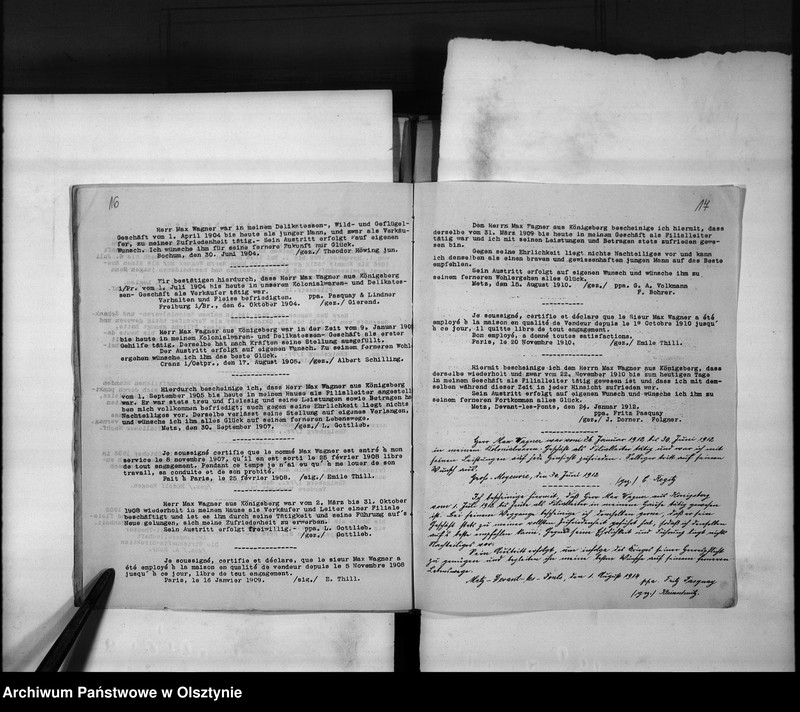 16
Herr Max Wagner war in meinem Delikatessen-, Wild- und Geflügel-
Geschäft vom 1. April 1904 bis heute als junger Mann, und zwar als Verkäu-
fer, zu meiner Zufriedenheit tätig.- Sein Austritt erfolgt auf eigenen
Wunsch. Ich wünsche ihm für seine fernere Zukunft nur Glück.
Bochum, den 30. Juni 1904. /gez/ Theodor Höwing jun.
Wir bestätigen hierdurch, dass Herr Max Wagner aus Königsberg
i/Pr. vom 1. Juli 1904 bis heute in unserem Kolonialwaren- und Delikates-
sen- Geschäft als Verkäufer tätig war.
Verhalten und Fleiss befriedigten. ppa. Pasquay & Lindner
Freiburg i/Br., den 6. Oktober 1904. /gez/ Gierend.
Herr Max Wagner aus Königsberg war in der Zeit vom 9. Januar 190
bis heute in meinem Kolonialwaren- und Delikatessen- Geschäft als erster
Gehilfe tätig. Derselbe hat nach Kräften seine Stellung ausgefüllt.
Der Austritt erfolgt auf eigenen Wunsch. Zu seinem ferneren Wohl-
ergehen wünsche ich ihm das beste Glück.
Cranz i/Ostpr., den 17. August 1905. /gez/ Albert Schilling.
Hierdurch bescheinige ich, dass Herr Max Wagner aus Königsberg
vom 1. September 1905 bis heute in meinem Hause als Filialleiter angestell
war. Er war stets treu und fleissig und seine Leistungen sowie Betragen ha
ben mich vollkommen befriedigt; auch gegen seine Ehrlichkeit liegt nichts
Nachteiliges vor. Derselbe verlässt seine Stellung auf eigenes Verlangen,
und wünsche ich ihm alles Glück auf seinem ferneren Lebenswege.
Metz, den 30. September 1907. /gez/ L. Gottlieb.
Je soussigné certifie que le nommé Max Wagner est entré à mon
service le 8 novembre 1907, qu'il en est sorti le 25 février 1908 libre
de tout engagement. Pendant ce temps je n'ai eu qu' à me louer de son
travail, sa conduite et de son probité.
Fait à Paris, le 25 février 1908. /sig/ Emile Thill.
Herr Max Wagner aus Königsberg war vom 2. März bis 31. Oktober
1908 wiederholt in meinem Hause als Verkäufer und Leiter einer Filiale
beschäftigt und ist es ihm durch seine Tätigkeit und seine Führung auf's
Neue gelungen, sich meine Zufriedenheit zu erwerben.
Sein Austritt erfolgt freiwillig.- ppa. L. Gottlieb.
/gez/ Gottlieb.
Je soussigné, certifie et déclare, que le sieur Max Wagner a
été employé à la maison en qualité de vendeur depuis le 5 Novembre 1908
jusqu' à ce jour, libre de tout engagement.
Paris, le 15 Janvier 1909. /sig/ E. Thill.
17
Dem Herrn Max Wagner aus Königsberg bescheinige ich hiermit, dass
derselbe vom 31. März 1909 bis heute in meinem Geschäft als Filialleiter
tätig war und ich mit seinen Leistungen und Betragen stets zufrieden gewe-
sen bin.
Gegen seine Ehrlichkeit liegt nichts Nachteiliges vor und kann
ich denselben als einen braven und gewissenhaften jungen Mann auf das Beste
empfehlen.
Sein Austritt erfolgt auf eigenen Wunsch und wünsche ihm zu
seinem ferneren Wohlergehen alles Glück.
Metz, den 15. August 1910. /gez/ ppa. G. A. Volkmann
F. Bohrer.
Je soussigné, certifie et déclare que le Sieur Max Wagner a été
employé à la maison en qualité de Vendeur depuis le 1º Octobre 1910 jusqu'
à ce jour, il quitte libre de tout engagement.
Bon employé, a donné toutes satisfactions.
Paris, le 20 Novembre 1910. /gez/ Emile Thill.
Hiermit bescheinige ich dem Herrn Max Wagner aus Königsberg, dass
derselbe wiederholt und zwar vom 22. November 1910 bis zum heutigen Tage
in meinem Geschäft als Filialleiter tätig gewesen ist und dass ich mit dem-
selben während dieser Zeit in jeder Hinsicht zufrieden war.
Sein Austritt erfolgt auf eigenen Wunsch und wünsche ich ihm zu
seinem ferneren Fortkommen alles Glück.
Metz, Devant-les-Ponts, den 24. Januar 1912.
ppa. Fritz Pasquay
/gez/ J. Dorner. Folgner.
Herr Max Wagner war vom 28. Januar 1912 bis 30. Juni 1912
in meinem Kolonialwaren Geschäft als Filialleiter tätig und war ich mit
seinen Leistungen auf jede Hinsicht zufrieden. Selbiger tritt auf seinen
Wunsch aus.
Groß-Moyeuvre, den 30. Juni 1912
/gez/
Ich bescheinige hiermit, daß Herr Max Wagner aus Königsberg
vom 1. Juli 1912 bis heute als Filialleiter in meinem Hause tätig gewesen
ist. Bei seinem Weggange bescheinige ich demselben gerne, daß er sein
Geschäft stets zu meiner vollsten Zufriedenheit geführt hat,
Nachteiliges vor.
Sein Austritt erfolgt, um infolge des Krieges seiner Heerespflicht
zu genügen und begleiten ihn meine besten Wünsche auf seinem ferneren
Lebenswege.
Metz-Devant-les-Ponts, den 1. August 1914
ppa. Fritz Pasquay
/gez/
Archiwum Państwowe w Olsztynie